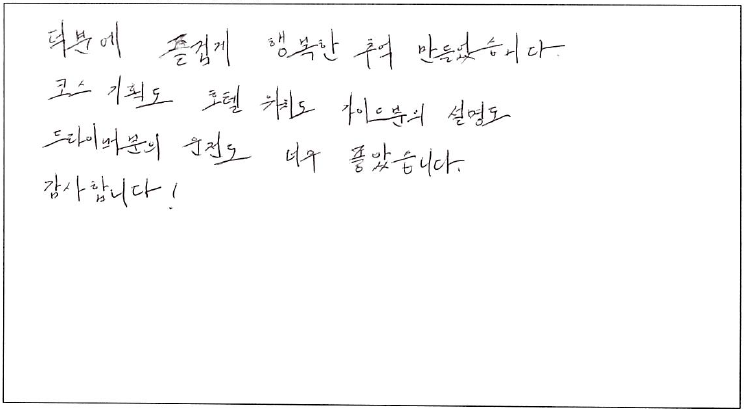 덕분에 즐겁게 행복한 추억 만들었습니다.
코스 기획도 호텔 위치도 가이드분의 설명도
드라이버분의 운전도 너무 좋았습니다.
감사합니다!